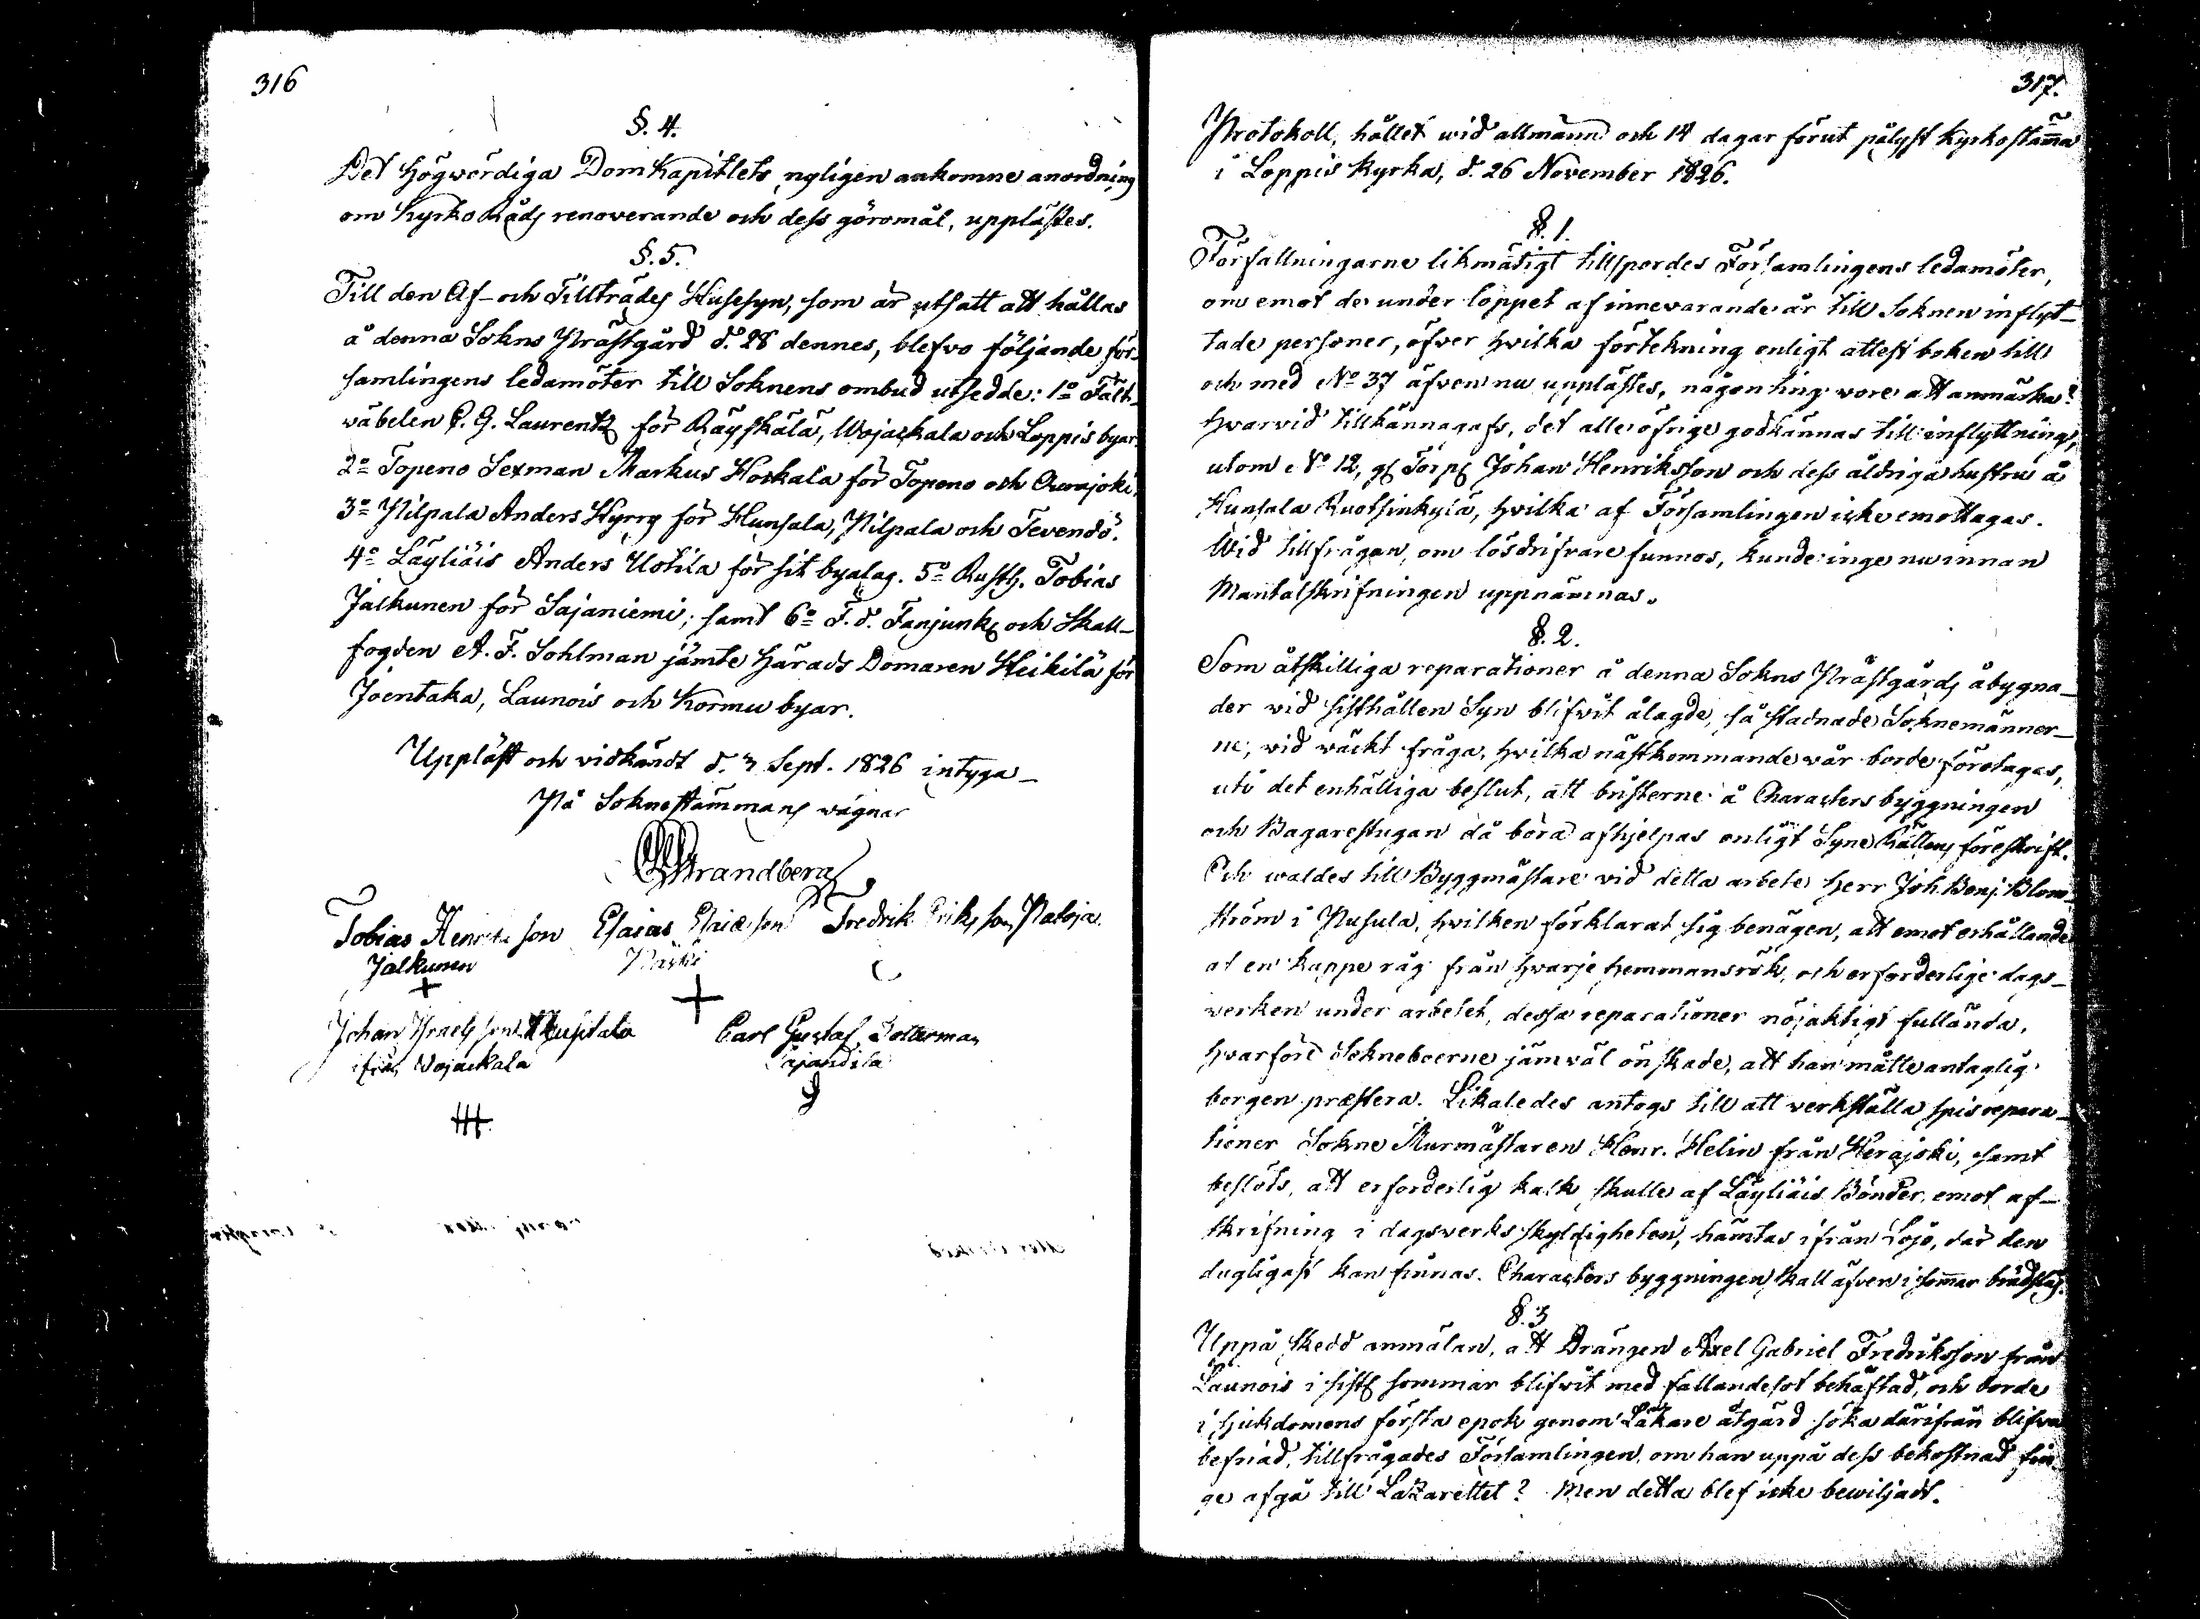 316
§. 4.
Det Högwördiga DomKapitlets nyligen ankomne anordning
om KyrkoRåds renoverande och dess göromål, upplästes.
§. 5.
Till den Af- och Tillträdes Husesyn, som är utsatt att hållas
å denna Sokns Prästgård d. 28 dennes, blefvo följande för-
samlingens ledamöter till Soknens ombud utsedde: 1o Fält-
wäbelen C. G. Laurentz för Räyskälä, Wojackala och Loppis byar.
2o Topeno Sexman Markus Hoskala för Topeno och
3o Pilpala Anders Hyrry för Hunsala, Pilpala och Tevendö.
4o Läyliäis Anders Uotila för sit byalag. 5o Rusth. Tobias
Jalkunen för Sajaniemi; samt 6o F. d. Fanjunk. och Skall-
fogden A. F. Sohlman jämte Härads Domaren Heikilä för
Joentaka, Launois och Kormu byar.
Uppläst och vidkändt d. 3 Sept. 1826 intyga-
På Sokneståmmans wägnar
Strandberg
Tobias Henriksson Esaias Esaiasson Fredrik Eriksson Paloja
Jalkunen
Johan Israelsson
ifrån Wojackala Carl Gustaf
317.
Protokoll, hållet wid allmänn och 14 dagar förut pålyst Kyrkostäm̄a
i Loppis Kyrka, d. 26 November 1826.
§. 1.
Författningarne likmätigt tillspordes Församlingens ledamöter,
om emot de under loppet af innevarande år till Soknen inflyt-
tade personer, öfver hvilka förtekning enligt attest boken till
och med No 37 äfven nu upplästes, någon ting vore att anmärka?
hvarvid tillkännagafs, det alle öfrige godkännas till inflyttning,
utom No 12, Johan Henriksson och dess åldriga hustru å
Hunsala Ruotsinkylä, hvilka af Församlingen icke emottagas.
Wid tillfrågan, om lösdrifvare funnos, kunde inge nu innan
Mantalskrifningen uppnämnas.
§. 2.
Som åtskilliga reparationer å denna Sokns Prästgårds åbygna-
der vid sisthållen Syn blifvit ålagde, så stadnade Soknemänner-
ne, vid wäckt fråga, hvilka nästkommande vår borde företagas,
uti det enhälliga beslut, att bristerne å Charactersbyggningen
och Bagarestugan då böra afhjelpas enligt SyneRättens föreskrift.
Och waldes till Byggmästare vid detta arbete Herr Joh. Benj. Blom-
ström i Pusula, hvilken förklarat sig benägen, att emot erhållande
af en kappe råg från hvarje hemmansrök, och erforderlige dags-
verken under arbetet, dessa reparationer nöjaktigt fullända,
hvarföre Sokneboerne jämväl önskade, att han måtte antaglig
borgen præstera. Likaledes antogs till att verkställa spisrepara-
tioner Sokne Murmästaren Henr. Helin från Herajoki, samt
beslöts, att erforderlig kalk skulle af Läyliäis Bönder, emot af-
skrifning i dagsverks skyldigheten, hämtas ifrån Lojo, där den
dugligast kan finnas. Charactersbyggningen skall äfven i som̄ar brädslås.
§. 3
Uppå skedd anmälan, att Drängen Axel Gabriel Fredriksson från
Launois i sistl. sommar blifvit med fallandesot behäftad, och borde
i sjukdomens första epok genom Läkare åtgärd söka därifrån blifva
befriad, tillfrågades Församlingen, om han uppå dess bekostnad fin-
ge afgå till Lazarettet? Men detta blef icke bewiljadt.